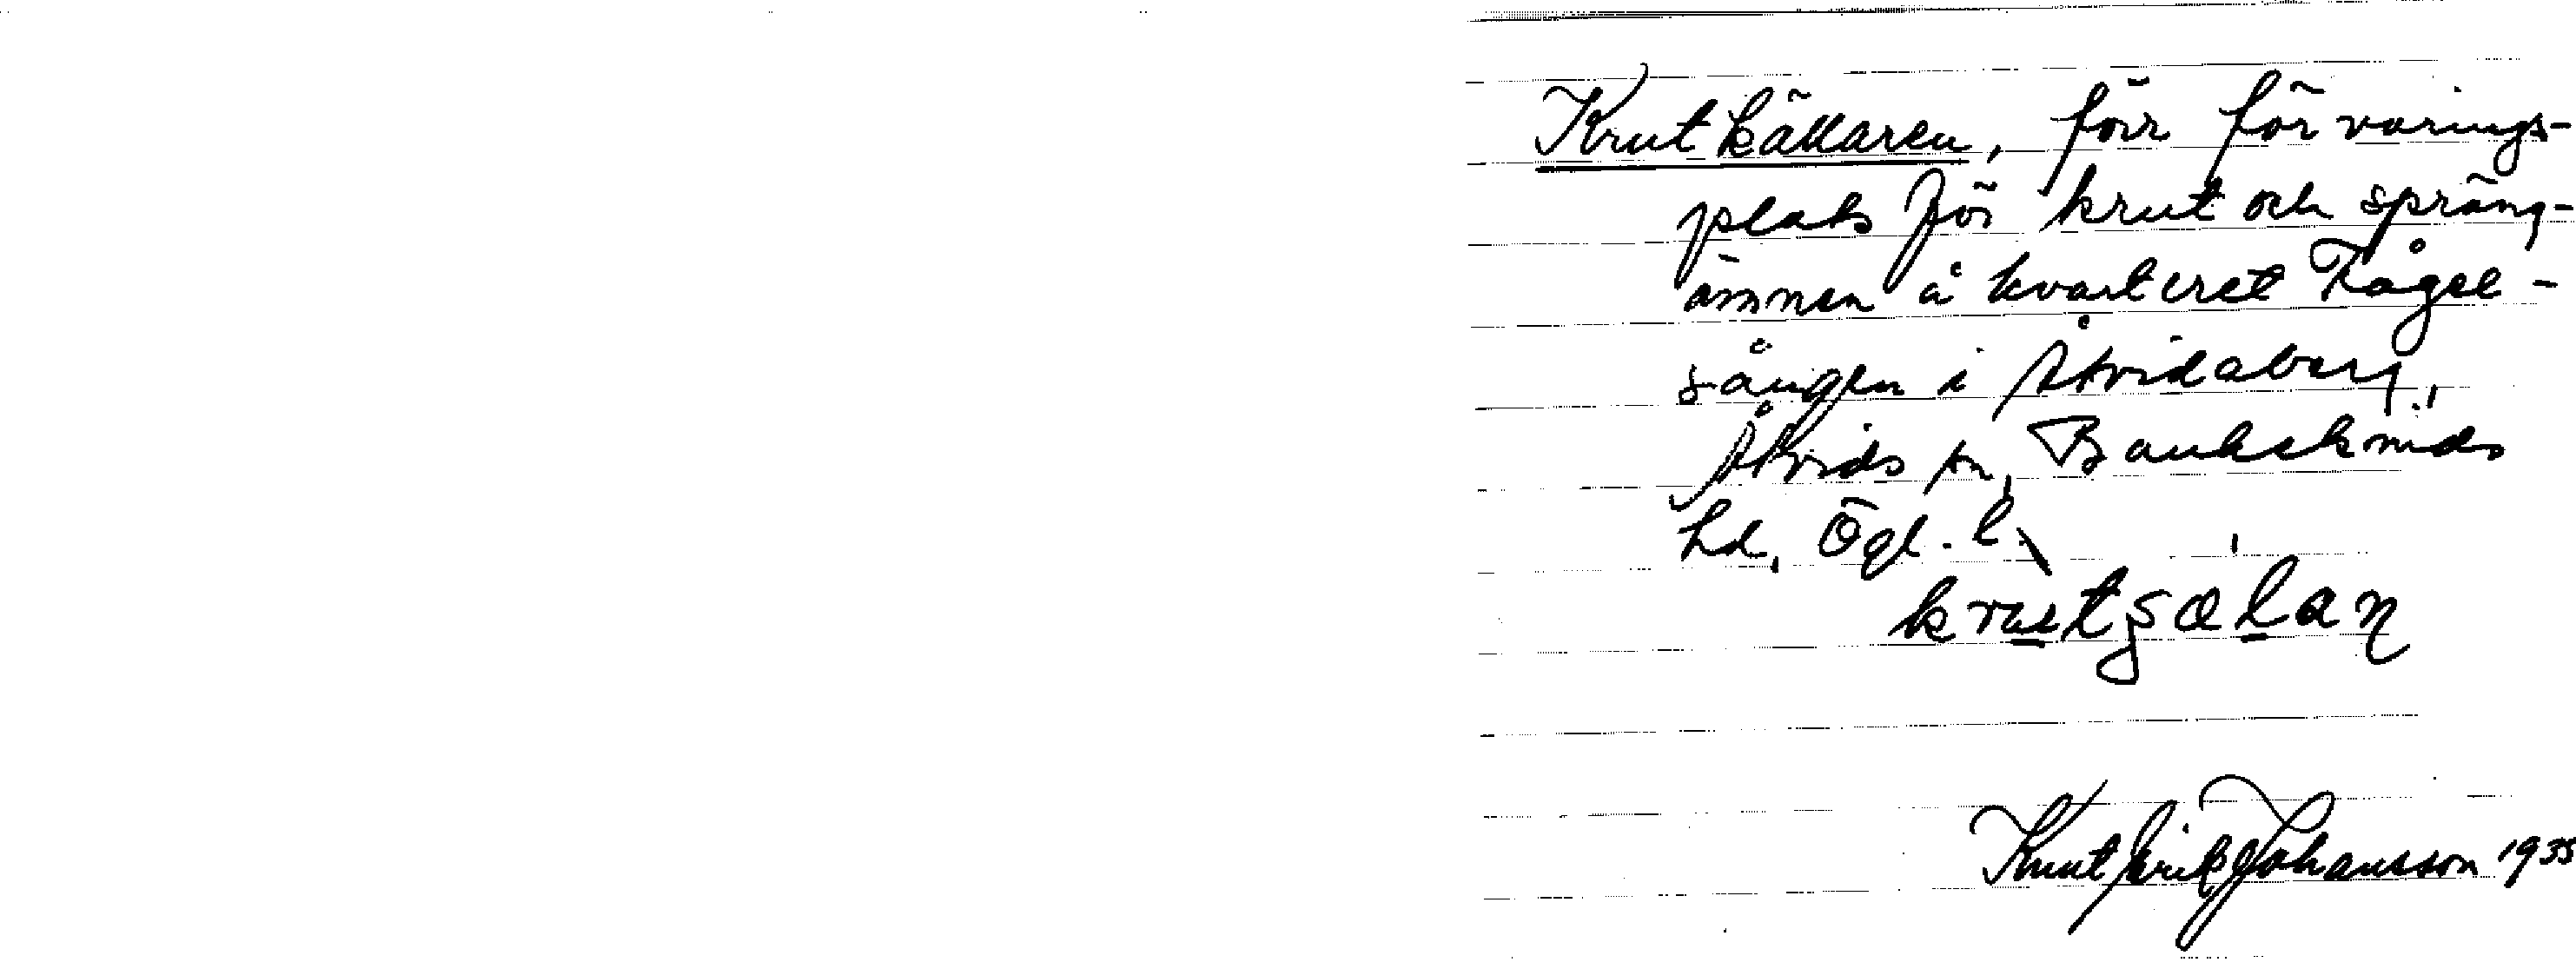 Krutkällaren, förr förvarings-
plats för krut och spräng-
ämnen å kvarteret Fågel-
sången i Åtvidaberg,
Åtvids sn, Bankekinds
hd, Ögl. l.
Knut Erik Johansson 1935